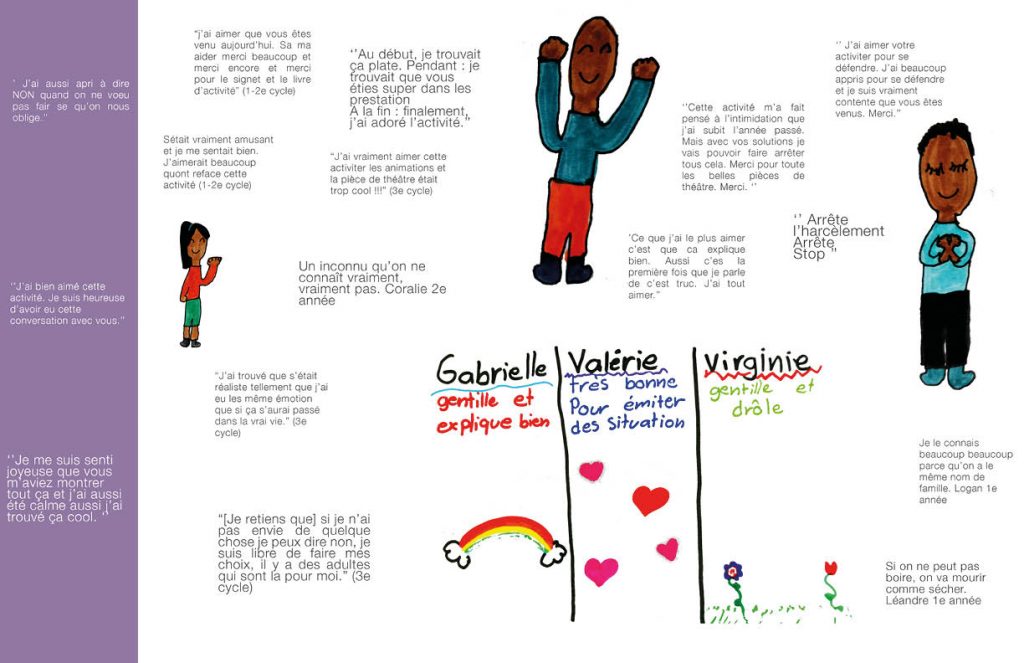 ' J'ai aussi apri à dire
NON quand on ne voeu
pas fair se qu'on nous
oblige."
''J'ai bien aimé cette
activité. Je suis heureuse
d'avoir eu cette
conversation avec vous.''
''Je me suis senti
joyeuse que vous
m'aviez montrer
tout ça et j'ai aussi
été calme aussi j'ai
trouvé ça cool. ''
"j'ai aimer que vous êtes
venu aujourd'hui. Sa ma
aider merci beaucoup et
merci encore et merci
pour le signet et le livre
d'activité" (1-2e cycle)
Sétait vraiment amusant
et je me sentait bien.
J'aimerait beaucoup
quont reface cette
activité (1-2e cycle)
''Au début, je trouvait
ça plate. Pendant : je
trouvait que vous
éties super dans les
prestation
A la fin : finalement,
j'ai adoré l'activité."
"J'ai vraiment aimer cette
activiter les animations et
la pièce de théâtre était
trop cool !!!" (3e cycle)
Un inconnu qu'on ne
connaît vraiment,
vraiment pas. Coralie 2e
année
"J'ai trouvé que s'était
réaliste tellement que j'ai
eu les même émotion
que si ça s'aurai passé
dans la vrai vie." (3e
cycle)
"[Je retiens que] si je n'ai
pas envie de quelque
chose je peux dire non, je
suis libre de faire mes
choix, il y a des adultes
qui sont là pour moi." (3e
cycle)
''Cette activité m'a fait
pensé à l'intimidation que
j'ai subit l'année passé.
Mais avec vos solutions je
vais pouvoir faire arrêter
tous cela. Merci pour toute
les belles pièces de
théâtre. Merci. ''
'Ce que j'ai le plus aimer
c'est que ca explique
bien. Aussi c'es la
première fois que je parle
de c'est truc. J'ai tout
aimer."
'' J'ai aimer votre
activiter pour se
défendre. J'ai beaucoup
appris pour se défendre
et je suis vraiment
contente que vous êtes
venus. Merci."
'' Arrête
l'harcèlement
Arrête
Stop "
Gabrielle
gentille et
explique bien
Valérie
très bonne
Pour émiter
des situation
Virginie
gentille et
drôle
Je le connais
beaucoup beaucoup
parce qu'on a le
même nom de
famille. Logan 1e
année
Si on ne peut pas
boire, on va mourir
comme sécher.
Léandre 1e année